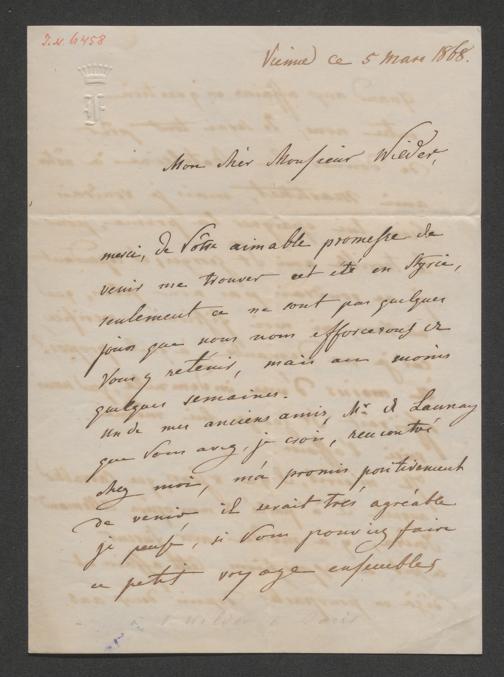 J.N. 61458
Vienne ce 5 mars 1868.
Mon cher Monsieur Wilder,
merci, de Vôtre aimable promesse de
venir me trouver cet été en Styrie,
seulement ce ne sont pas quelques
jours que nous nous efforcerons de
Vous y retenir, mais au moins
quelques semaines.
Un de mes anciens amis, Mr. de Launay
que Vous avez, je crois, rencontré
chez moi, m'a promis positivement
de venir il serait très agréable
je pense, si Vous pouviez faire
ce petit voyage ensembles